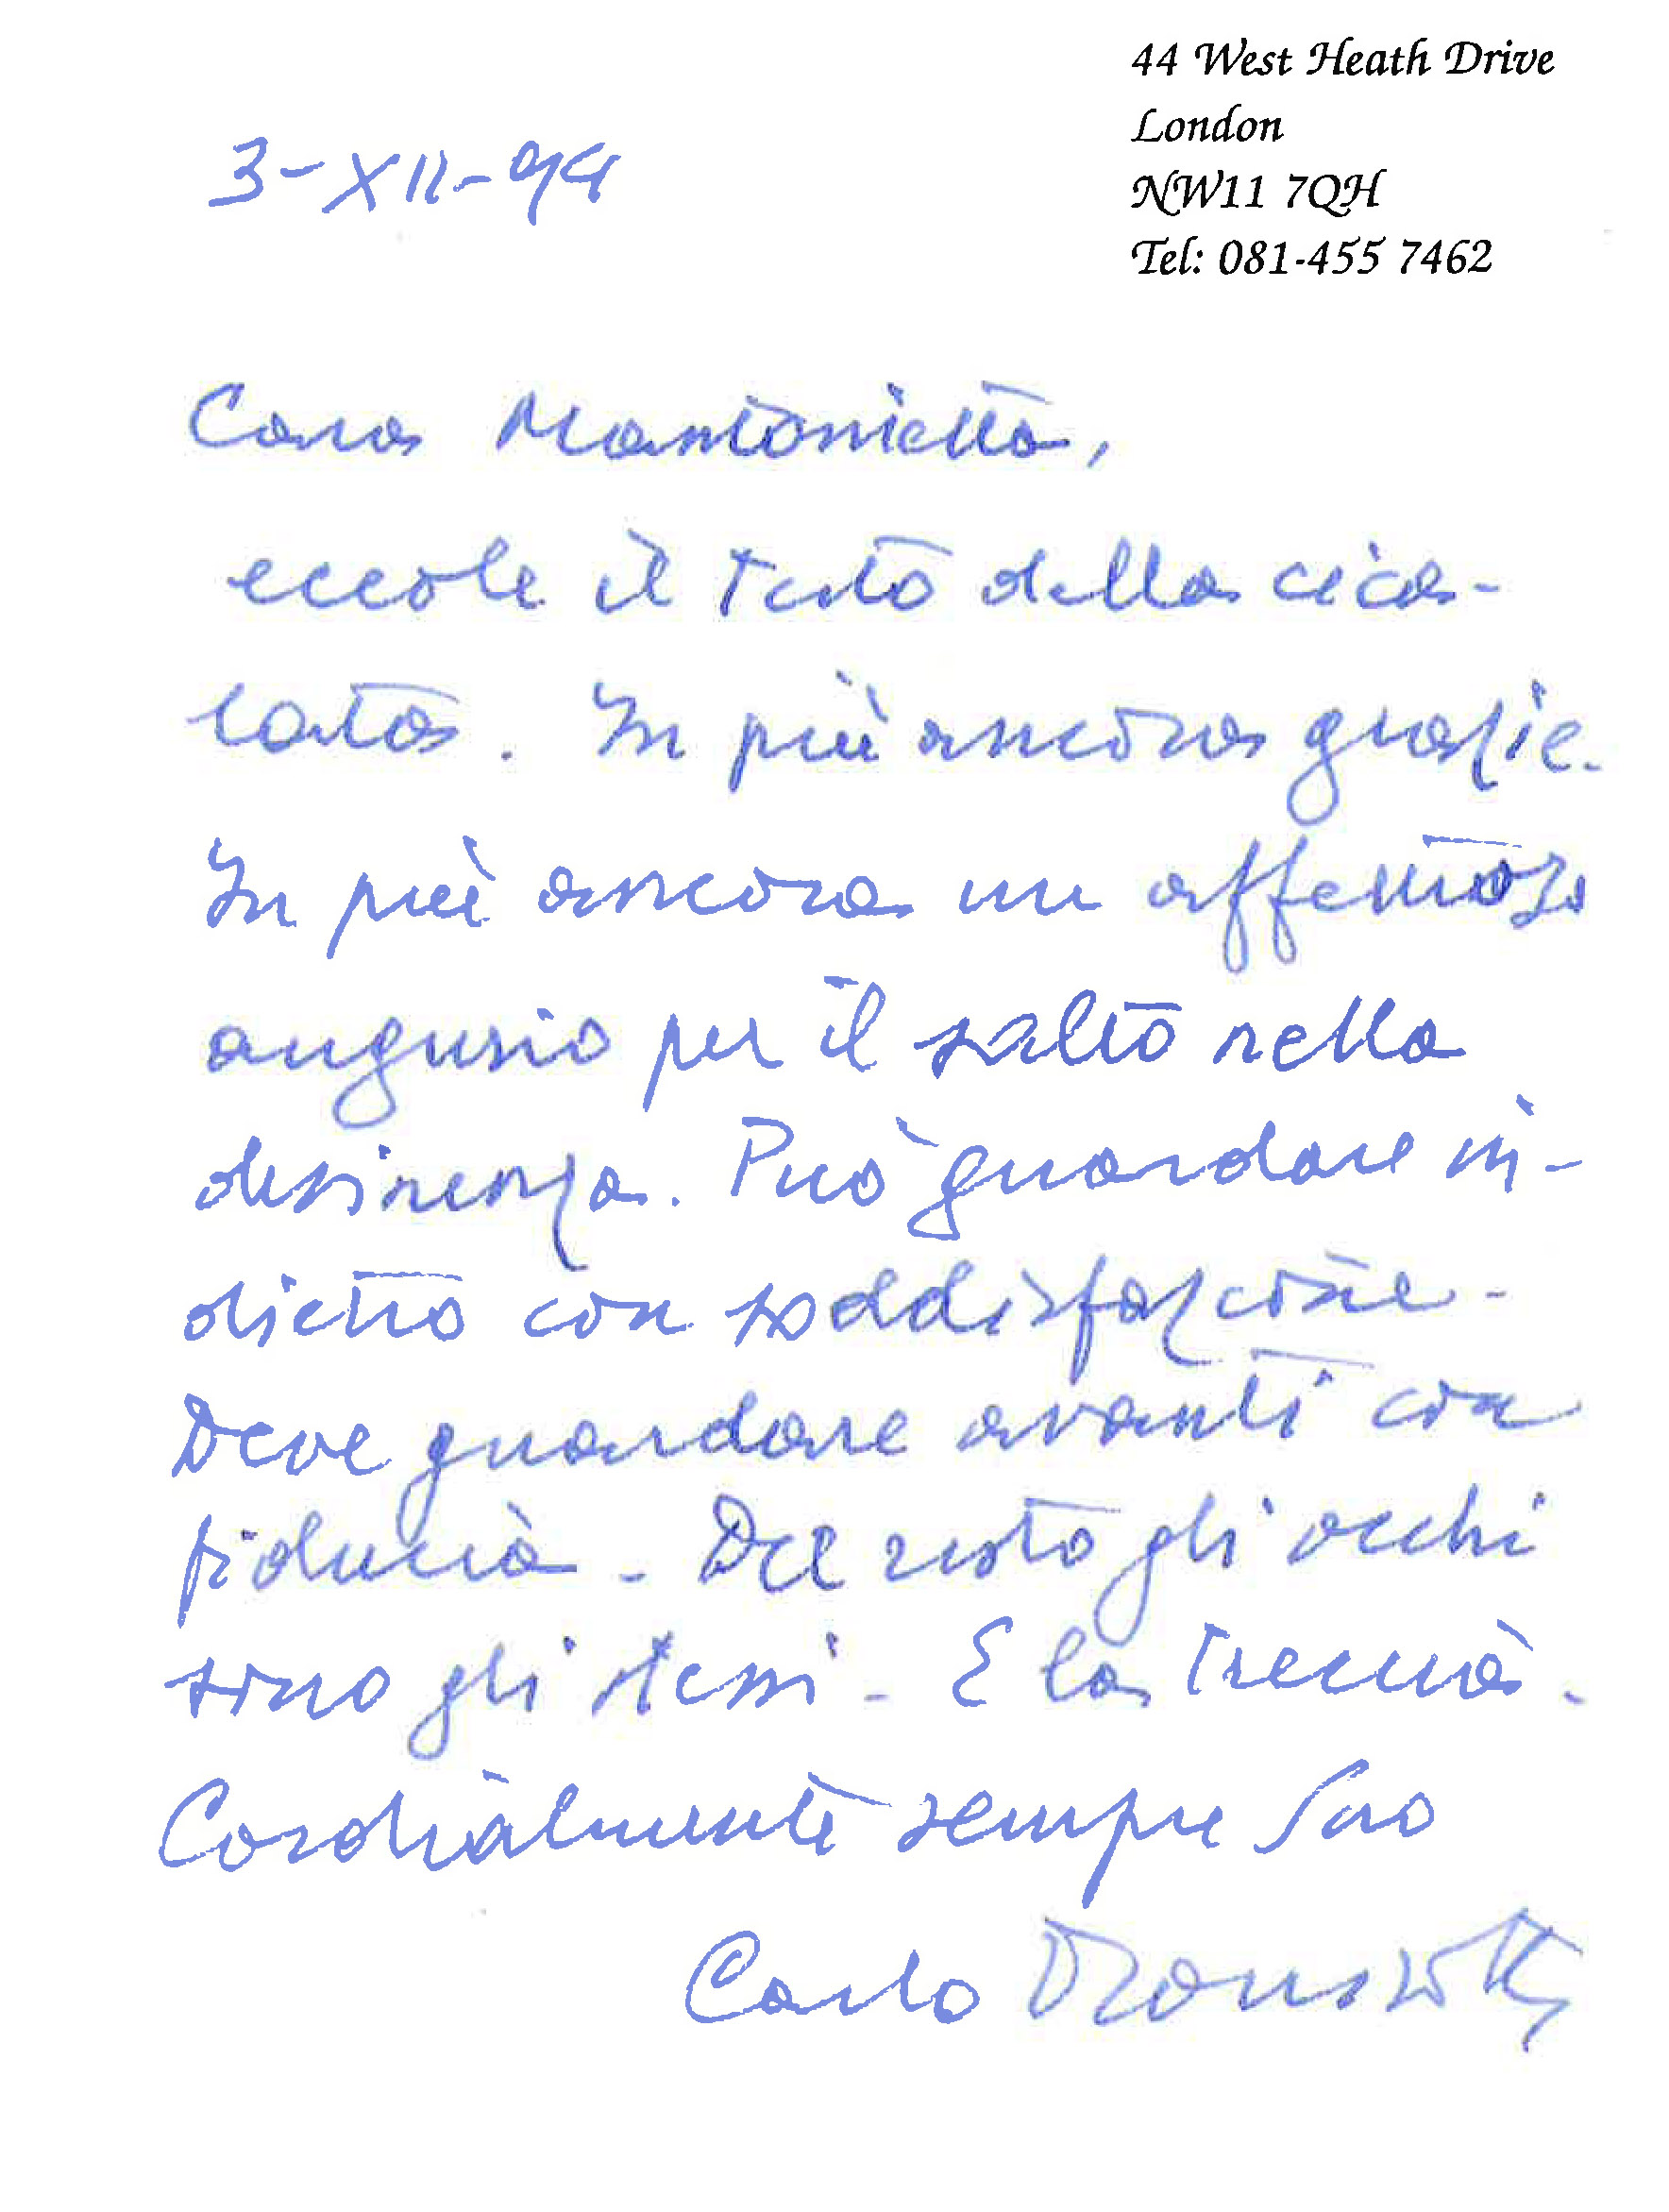 44 West Heath Drive
London
NW11 7QH
Tel: 081-455 7462
3-XII-94
Cara Mantonietta,
eccole il testo della cica-
lata. In più ancora grazie.
In più ancora un affettuoso
augurio per il salto nella
desinenza. Può guardare in-
dietro con soddisfazione.
Deve guardare avanti con
fiducia. Del resto gli occhi
sono gli stessi. E la treccia.
Cordialmente sempre Suo
Carlo